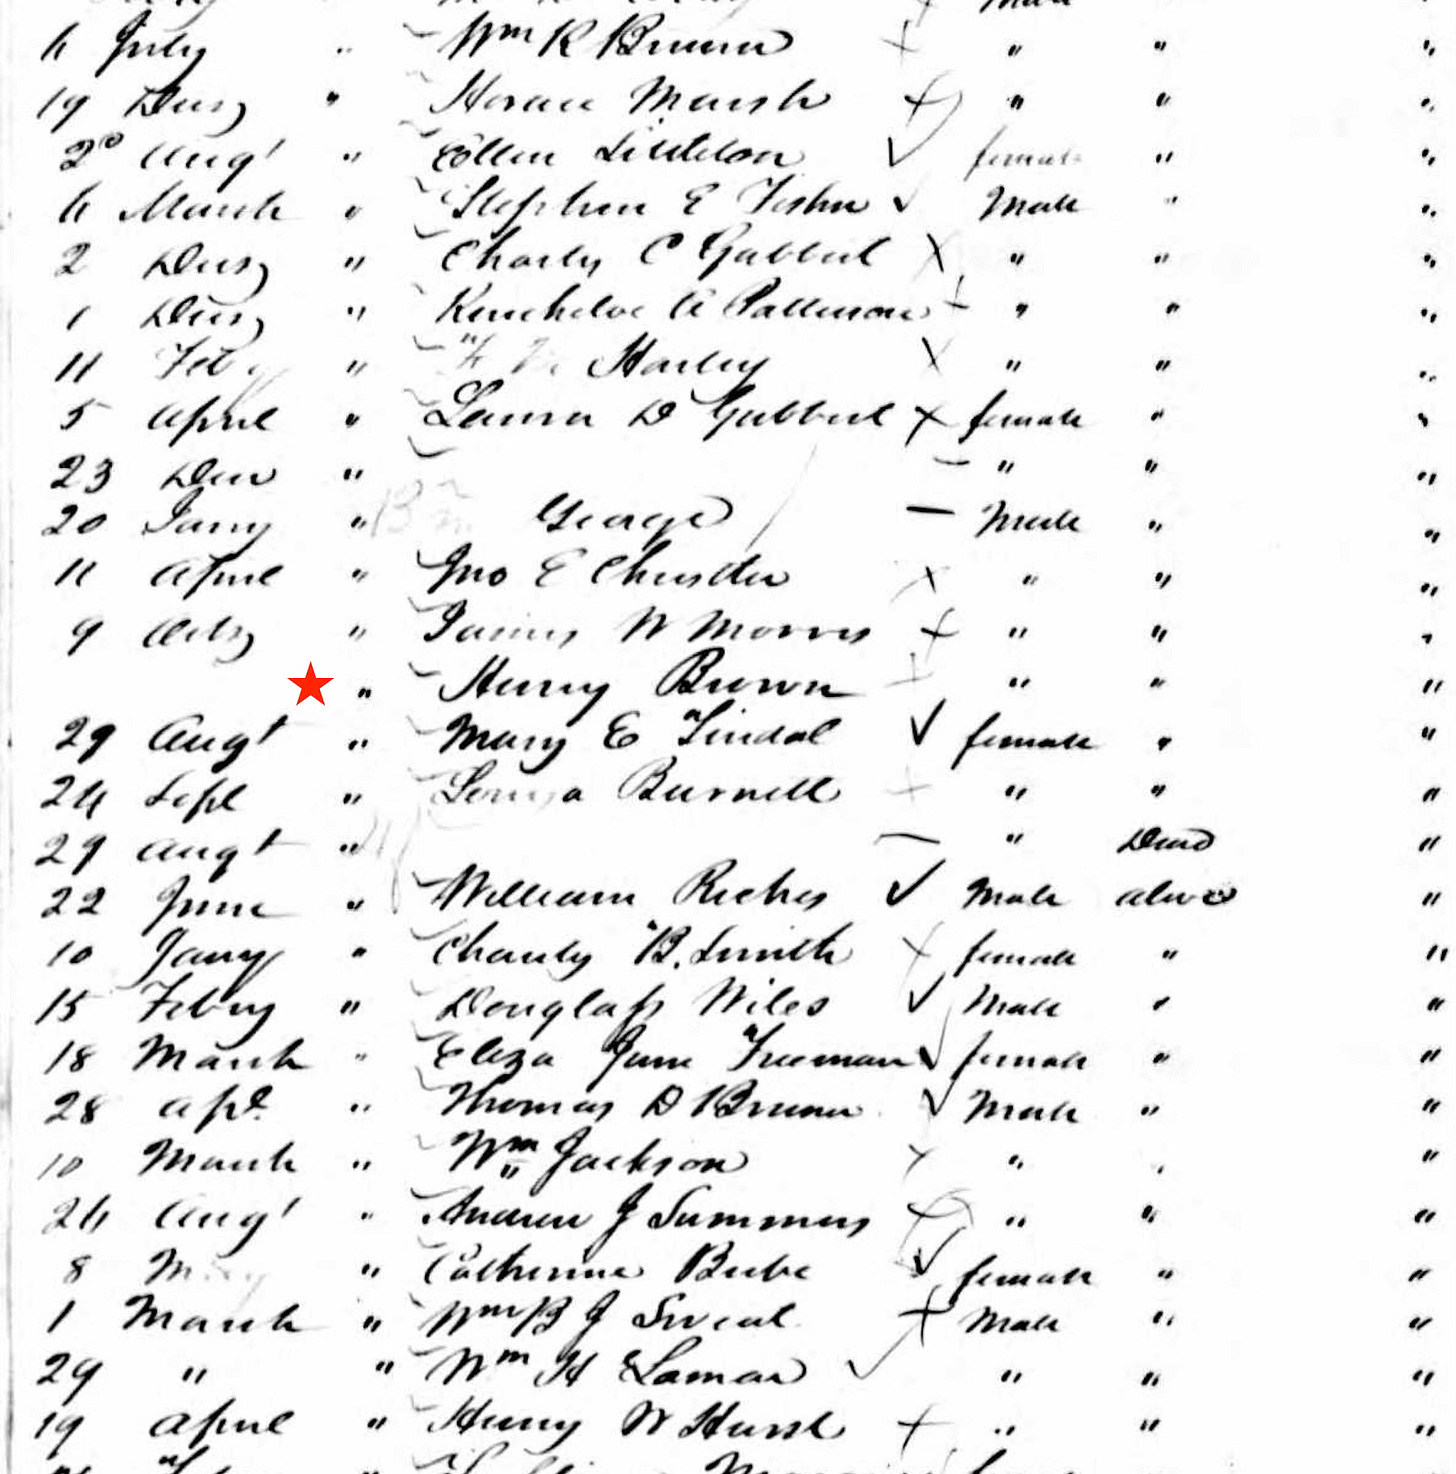 6 July " Wm R Bruner " " "
19 Decr " Horace Marsh " " "
20 Augt " Ellen Littleton female " "
6 March " Stephen E Fisher Male " "
2 Decr " Charly C Gabbert " " "
1 Decr " Kincheloe A Patterson " " "
11 Feby " Harley " " "
5 April " Laura D Gabbert female " "
23 Decr " " " "
20 Jany " George Male " "
11 April " Jno E " " "
9 Octr " James W Morris " " "
" Henry Brown " " "
29 Augt " Mary E Lindal female " "
24 Sept " Louisa Burnett " " "
29 Augt " " Dead "
22 June " William Riches Male alive "
10 Jany " Charly B. Smith female " "
15 Febry " Douglass Wiles Male " "
18 March " Eliza Jane Freeman female " "
28 Apl " Thomas D Bruner Male " "
10 March " Wm Jackson " " "
26 Augt " Andrew J Summers " " "
8 May " Catherine Beebe female " "
1 March " Wm B J Sweat Male " "
29 " " Wm H Lamar " " "
19 April " Henry W Hurst " " "